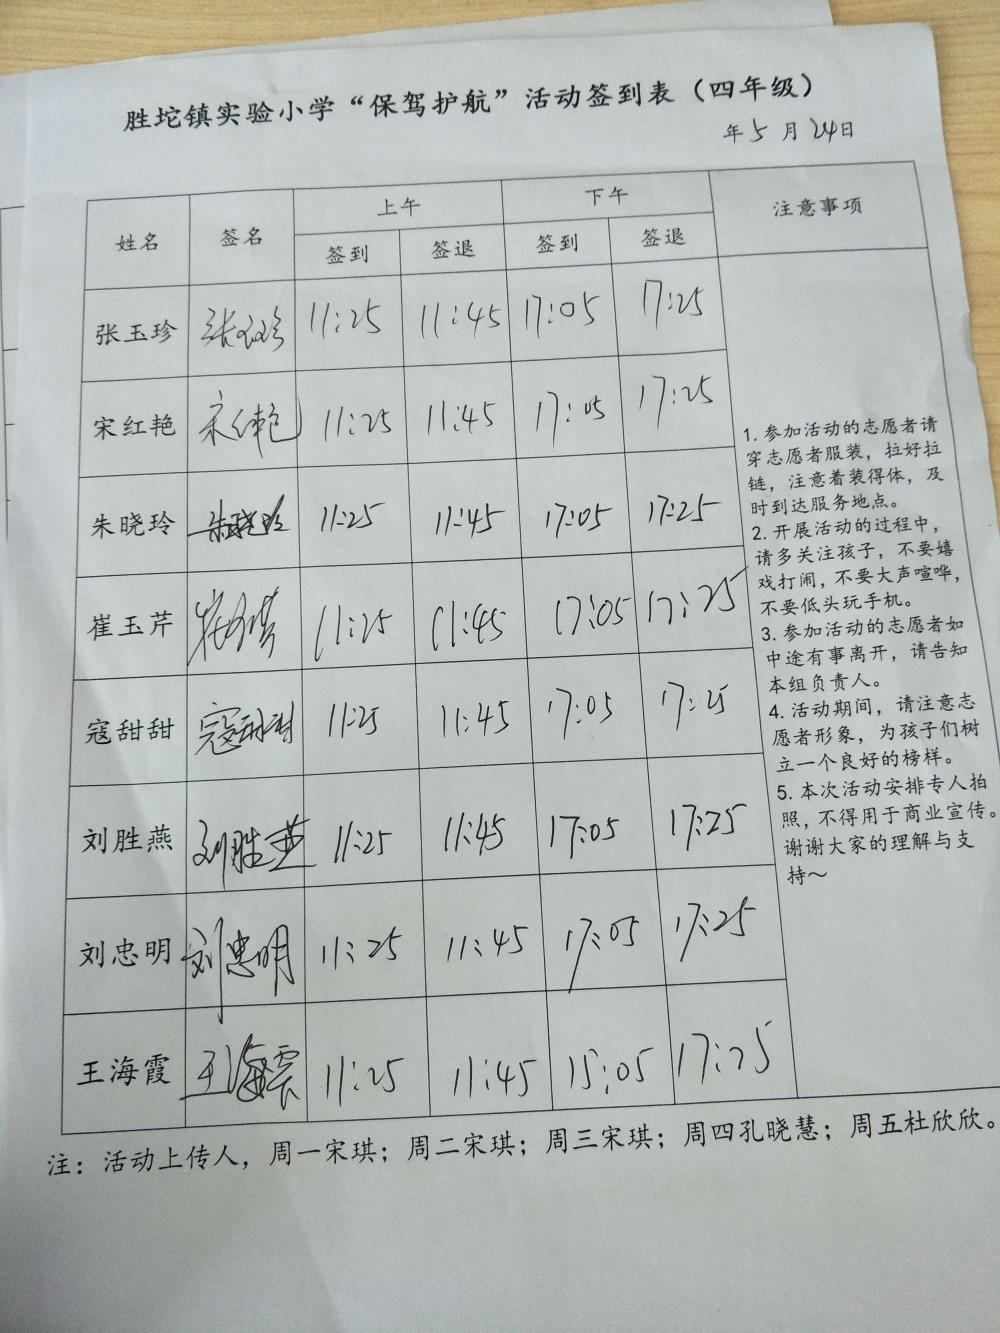 胜坨镇实验小学“保驾护航”活动签到表（四年级）
年5月24日
姓名 签名 上午 下午 注意事项
签到 签退 签到 签退
张玉珍 张玉珍 11:25 11:45 17:05 17:25
宋红艳 宋红艳 11:25 11:45 17:05 17:25
朱晓玲 朱晓玲 11:25 11:45 17:05 17:25
崔玉芹 11:25 11:45 17:05 17:25
寇甜甜 寇甜甜 11:25 11:45 17:05 17:25
刘胜燕 刘胜燕 11:25 11:45 17:05 17:25
刘忠明 刘忠明 11:25 11:45 17:05 17:25
王海霞 王海霞 11:25 11:45 15:05 17:25
1. 参加活动的志愿者请
穿志愿者服装，拉好拉
链，注意着装得体，及
时到达服务地点。
2. 开展活动的过程中，
请多关注孩子，不要嬉
戏打闹，不要大声喧哗，
不要低头玩手机。
3. 参加活动的志愿者如
中途有事离开，请告知
本组负责人。
4. 活动期间，请注意志
愿者形象，为孩子们树
立一个良好的榜样。
5. 本次活动安排专人拍
照，不得用于商业宣传。
谢谢大家的理解与支
持～
注：活动上传人，周一宋琪；周二宋琪；周三宋琪；周四孔晓慧；周五杜欣欣。